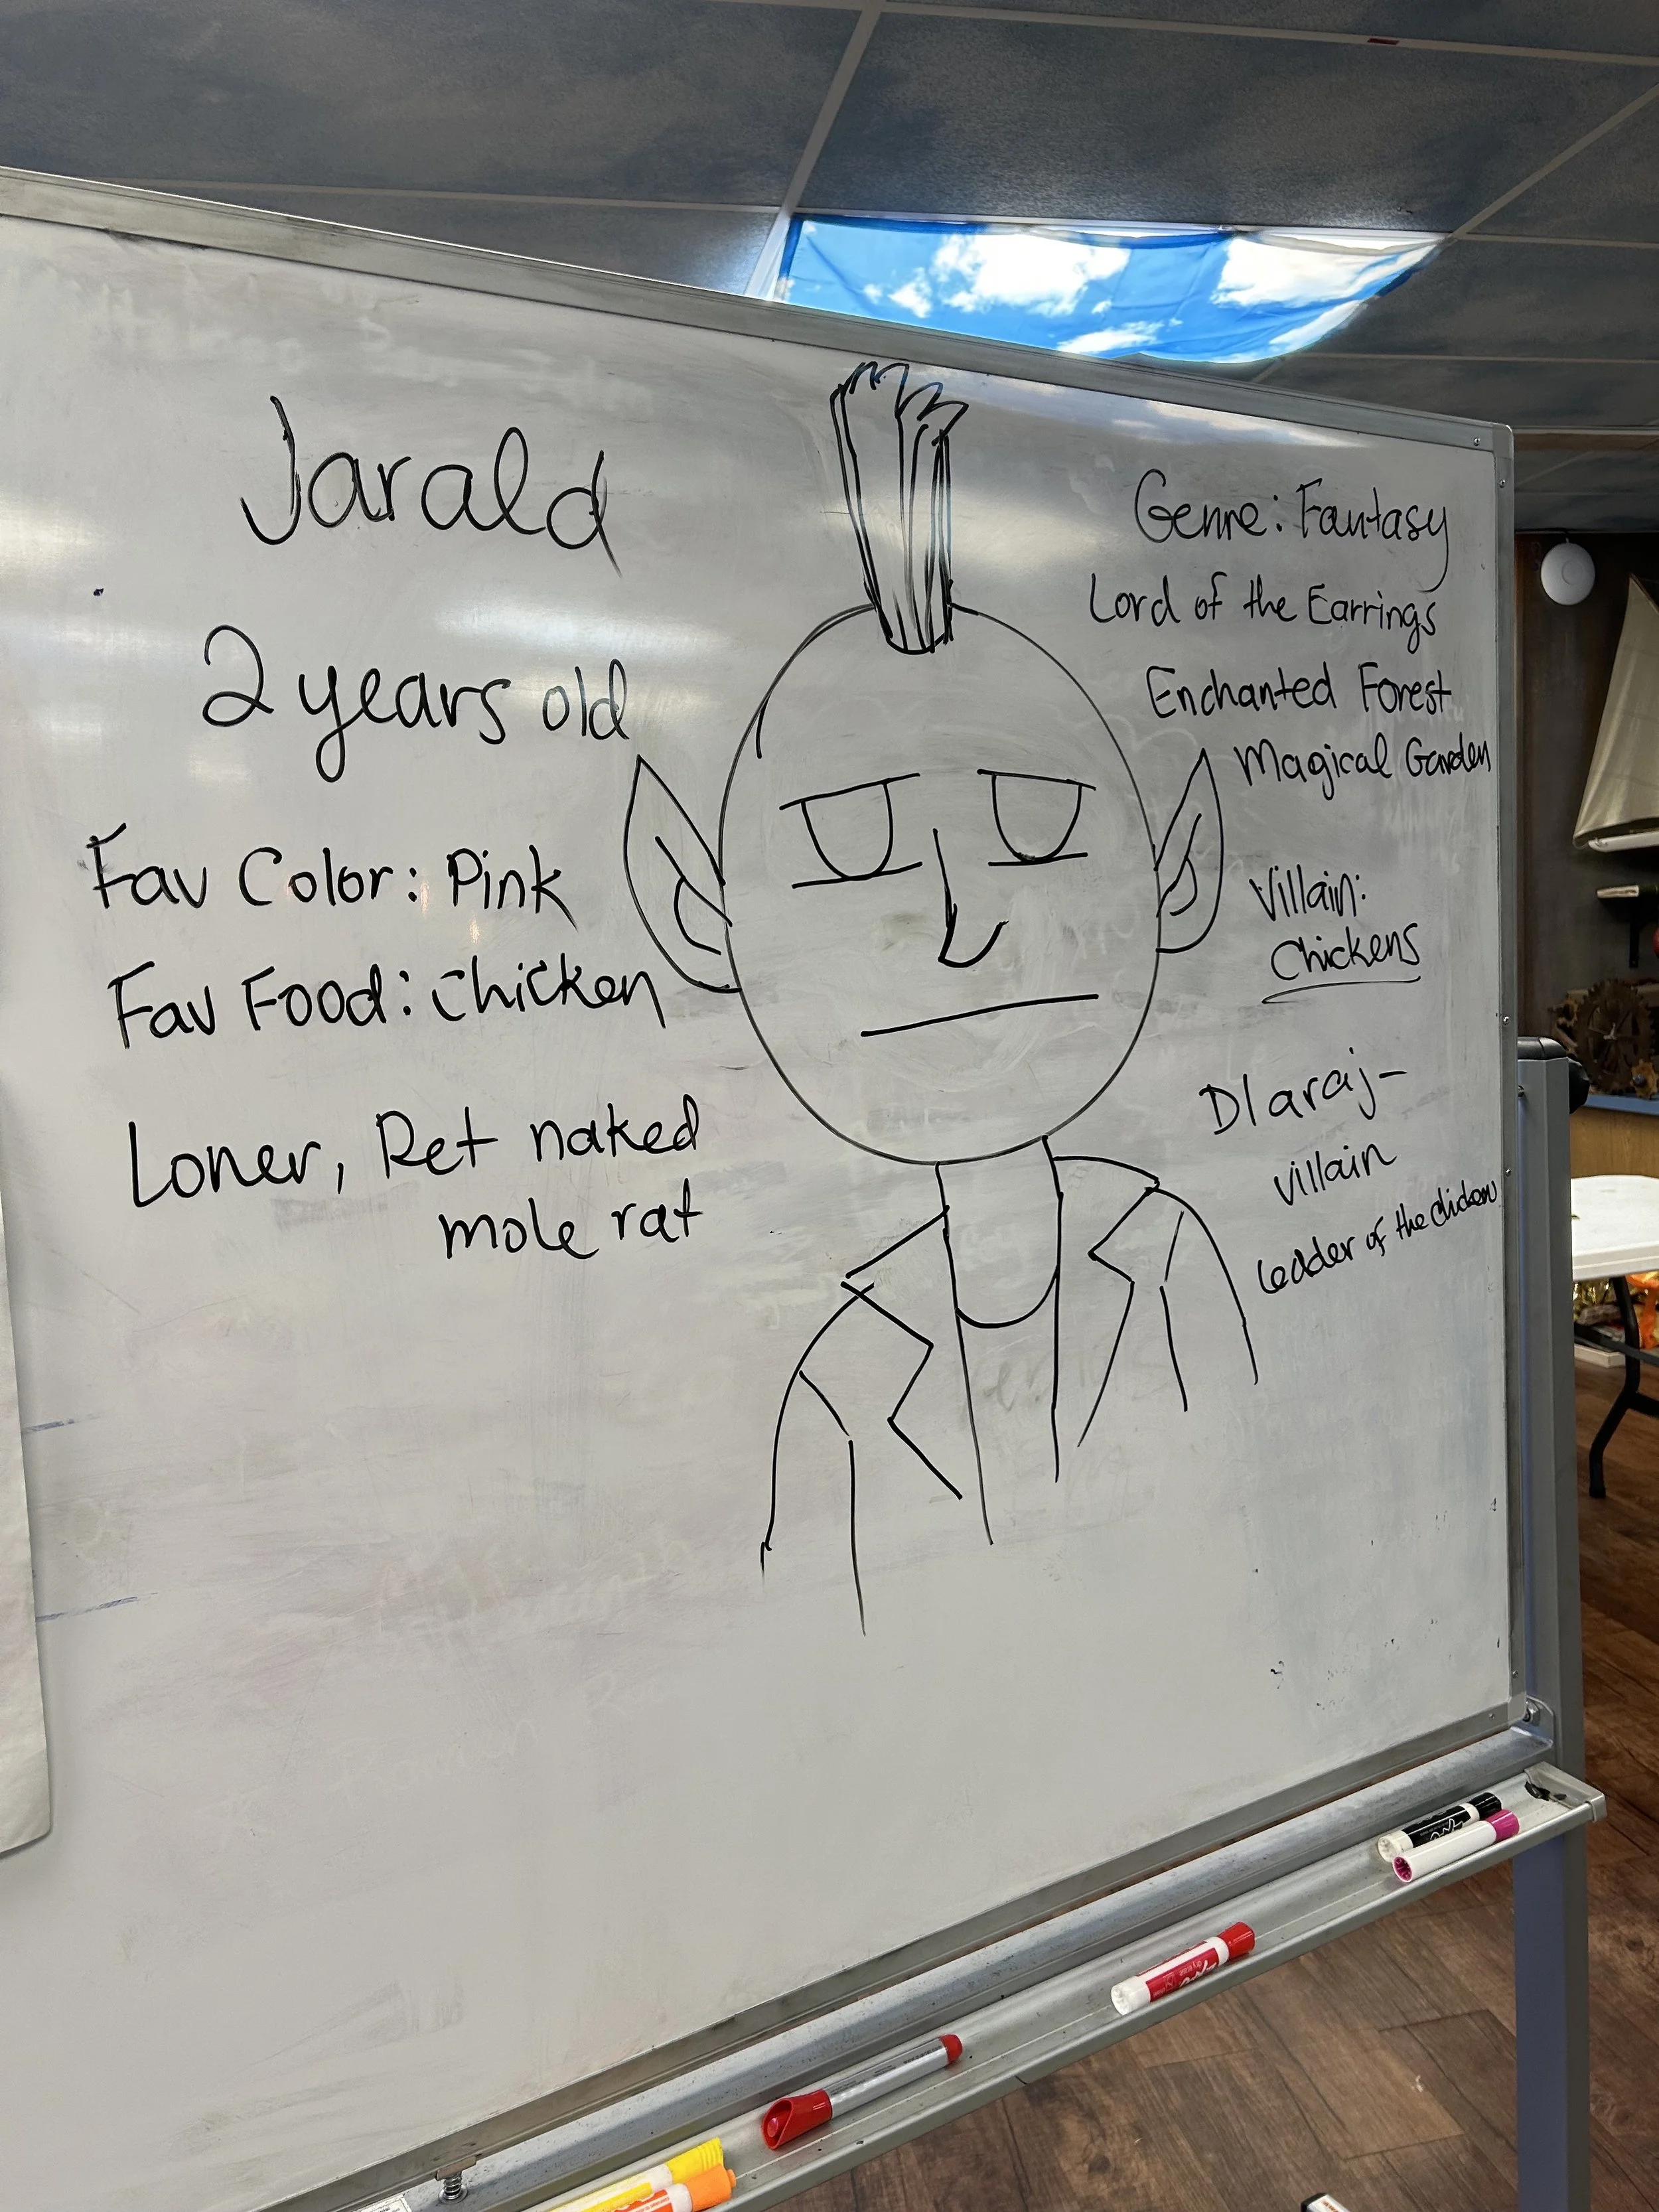 Jarald
2 years old
Fav Color: Pink
Fav Food: Chicken
Loner, Pet naked
mole rat
Genre: Fantasy
Lord of the Earrings
Enchanted Forest
Magical Garden
Villain:
Chickens
Dlaraj-
villain
leader of the chickens